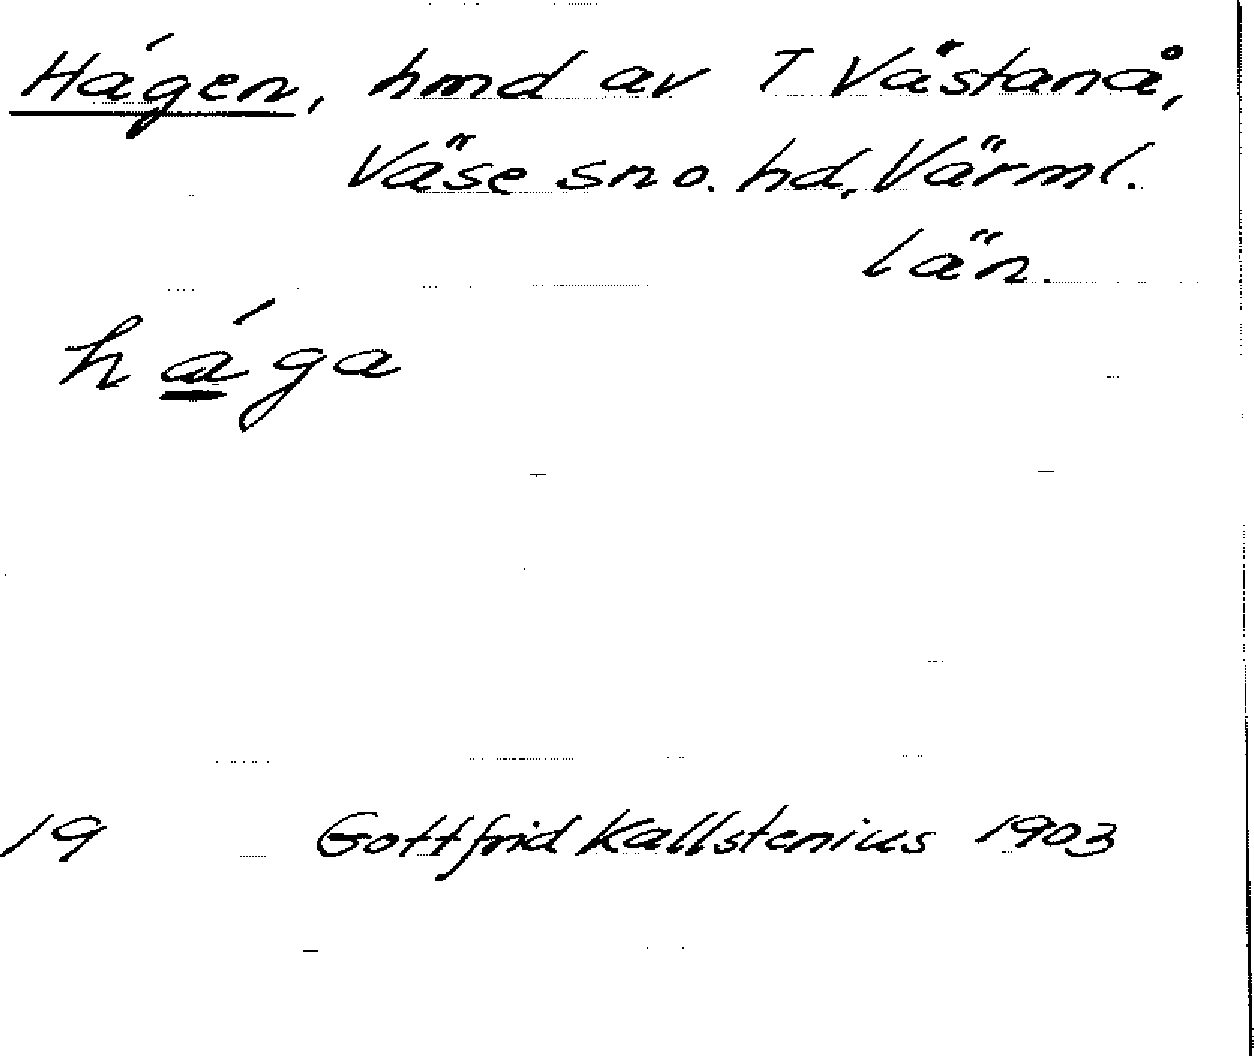 Hágen, hmd av T Västanå,
Väse sn o. hd, Värml.
län.
hága
19 Gottfrid Kallstenius 1903